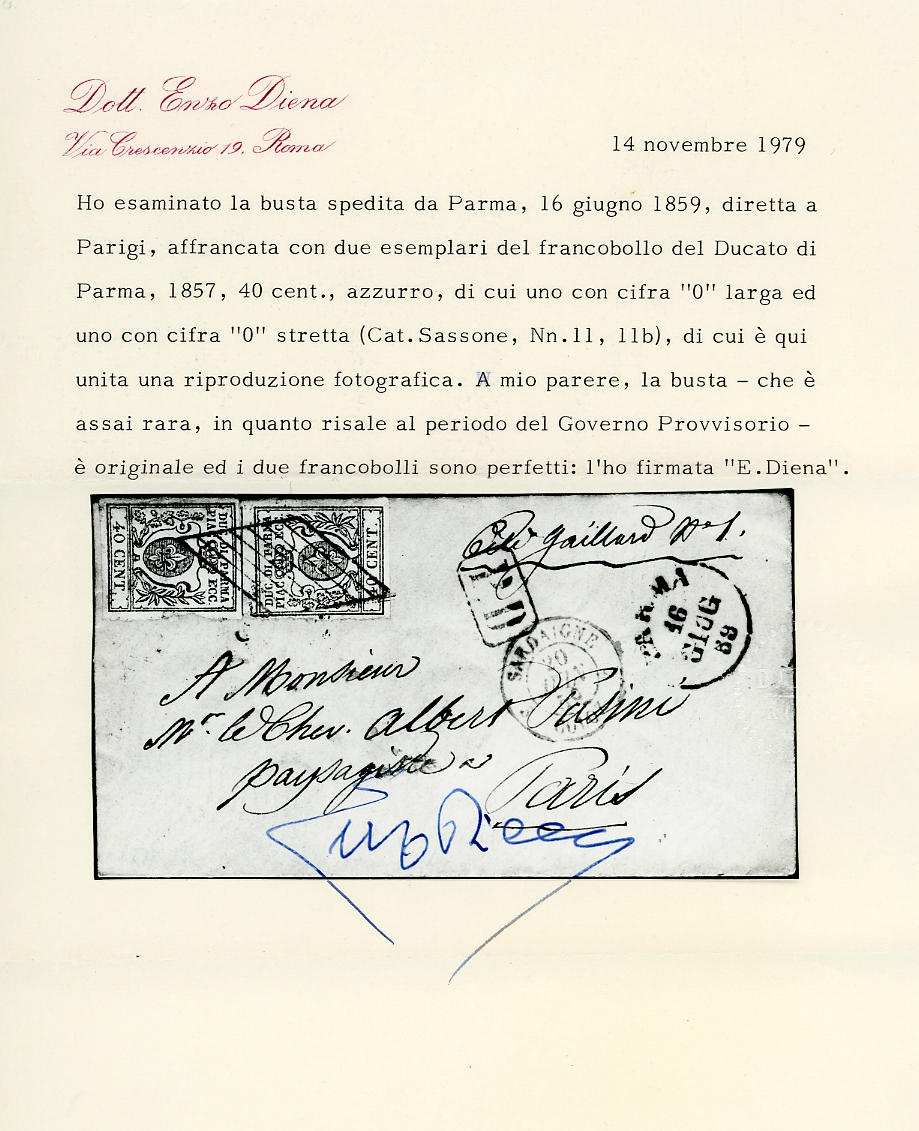 Dott. Enzo Diena
Via Crescenzio 19, Roma
14 novembre 1979
Ho esaminato la busta spedita da Parma, 16 giugno 1859, diretta a
Parigi, affrancata con due esemplari del francobollo del Ducato di
Parma, 1857, 40 cent., azzurro, di cui uno con cifra "0" larga ed
uno con cifra "0" stretta (Cat.Sassone, Nn.11, 11b), di cui è qui
unita una riproduzione fotografica. A mio parere, la busta - che è
assai rara, in quanto risale al periodo del Governo Provvisorio -
è originale ed i due francobolli sono perfetti: l'ho firmata "E.Diena".
40 CENT.
DUC. DI PARMA
PIAC. ECC.
40 CENT.
DUC. DI PARMA
PIAC. ECC.
Gaillard No 1.
P.D
PARMA
16
GIUG
59
SARDAIGNE
20
JUIN
A Monsieur
Mr. le Chev. Albert Pasini
paysagiste a
Paris
Enzo Diena